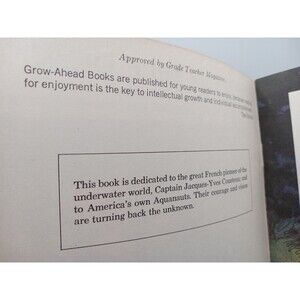 Approved by Grade Teacher Magazine
Grow-Ahead Books are published for young readers to enjoy
for enjoyment is the key to intellectual growth and individual
This book is dedicated to the great French pioneer of the
underwater world, Captain Jacques-Yves Cousteau; and
to America's own Aquanauts. Their courage and vision
are turning back the unknown.